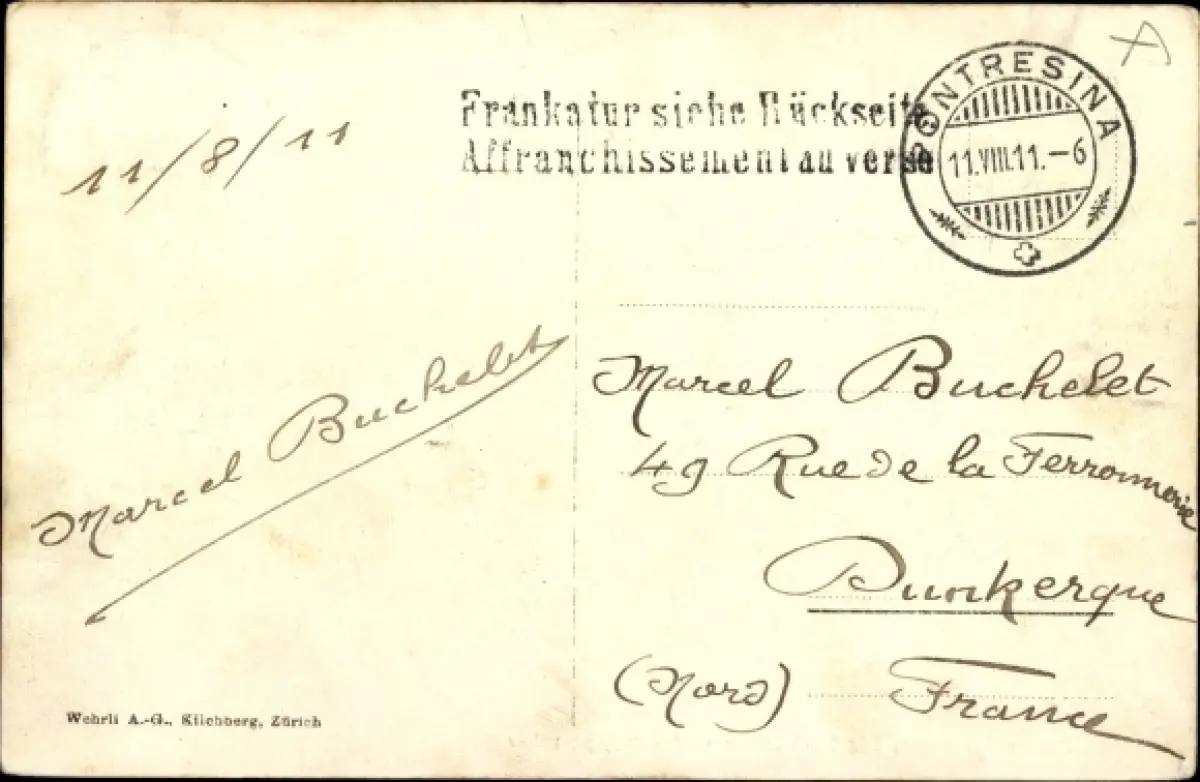 Frankatur siehe Rückseite
Affranchissement au verso
PONTRESINA
11.VIII.11.-6
11/8/11
Marcel Buchelet
Marcel Buchelet
49 Rue de la Ferronnerie
Dunkerque
(Nord) France
Wehrli A.-G., Kilchberg, Zürich